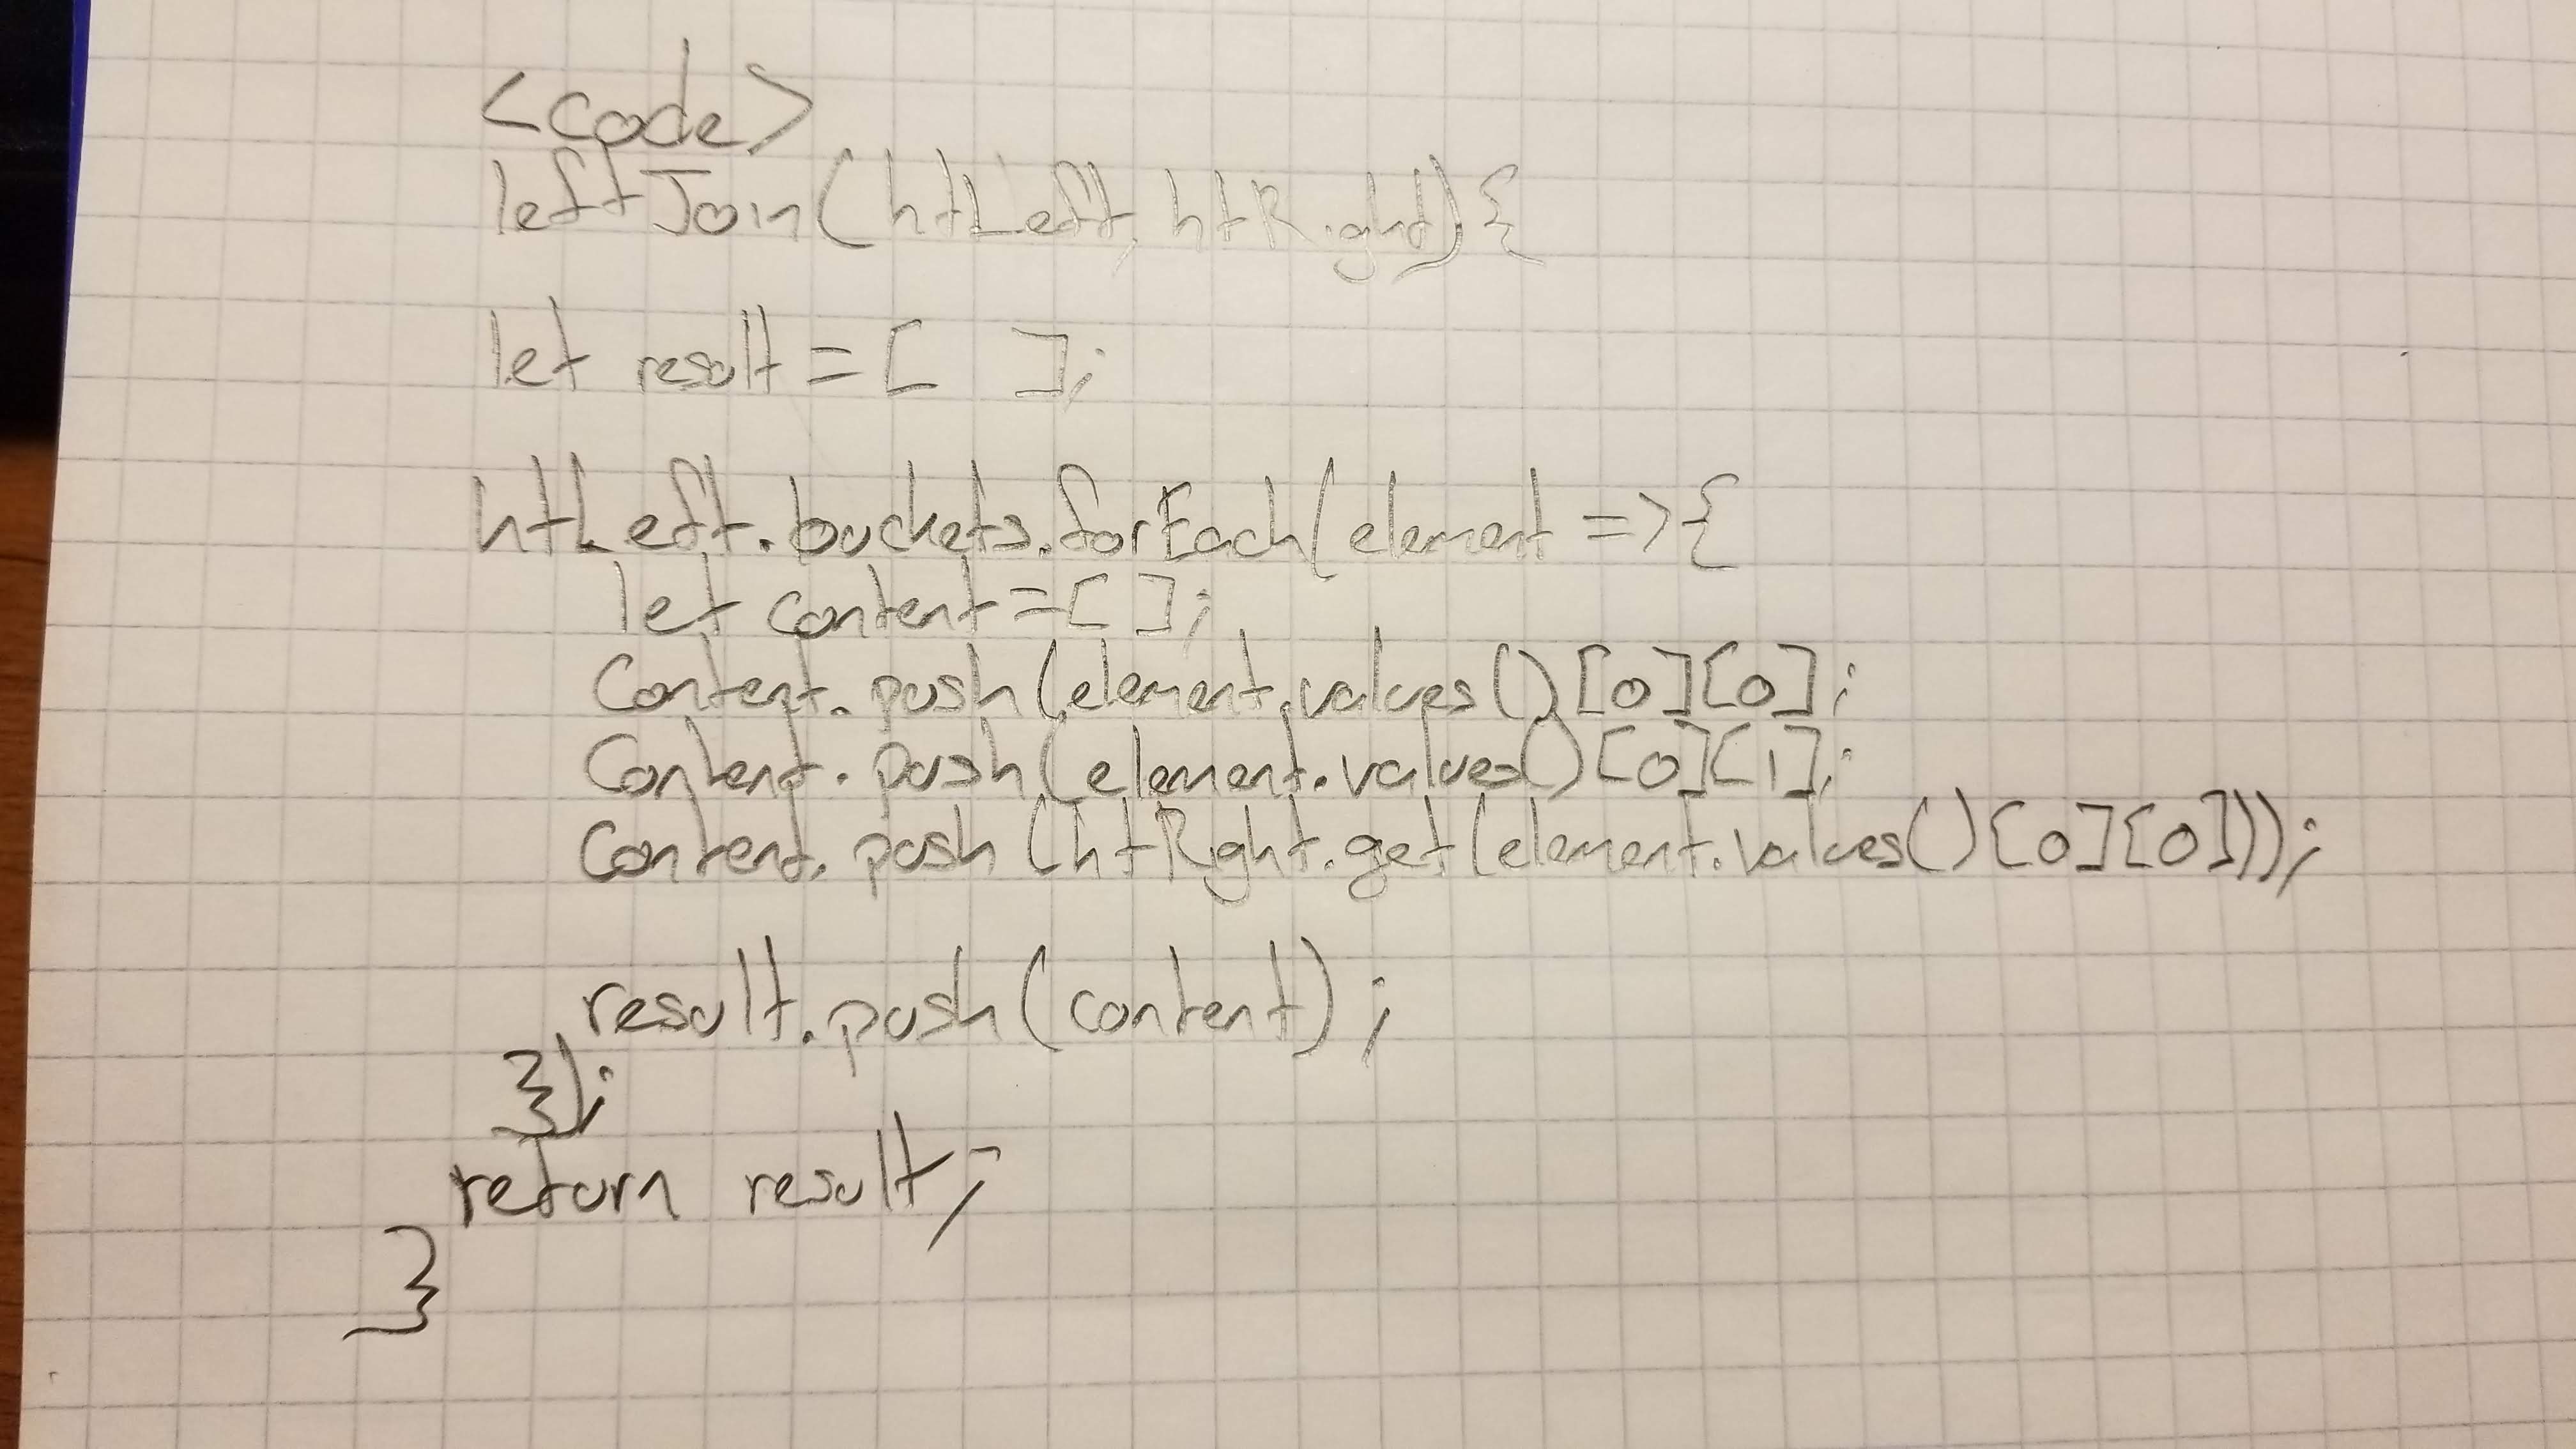 <code>
leftJoin(htLeft, htRight){
let result = [ ];
htLeft.buckets.forEach(element => {
let content = [ ];
Content.push(element.values()[0][0];
Content.push(element.values()[0][1];
Content.push(htRight.get(element.values()[0][0]));
result.push(content);
});
return result;
}